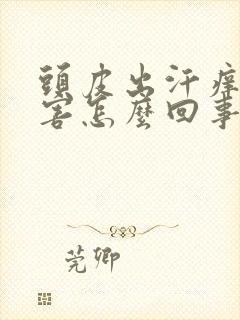 頭皮出汗癢
害怎麼回事
莞卿